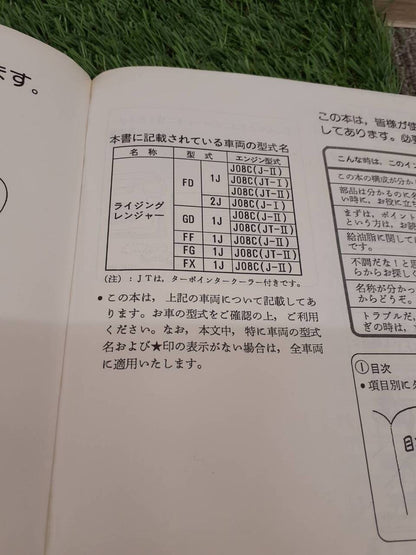 ます。
本書に記載されている車両の型式名
名 称 型 式 エンジン型式
ライジングレンジャー FD 1J J08C(J-Ⅱ)
J08C(JT-Ⅰ)
J08C(JT-Ⅱ)
2J J08C(J-Ⅰ)
GD 1J J08C(J-Ⅱ)
J08C(JT-Ⅱ)
FF 1J J08C(J-Ⅱ)
FG 1J J08C(JT-Ⅱ)
FX 1J J08C(J-Ⅱ)
(注):JTは,ターボインタークーラー付きです。
• この本は,上記の車両について記載してあ
ります。お車の型式をご確認の上,ご利用
ください。なお,本文中,特に車両の型式
名および★印の表示がない場合は,全車両
に適用いたします。
この本は,皆様が使
してあります。必
こんな時は,このイ
この本の構成が分か
部品は分かるのにタ
い時に,お役に立ち
まずは,ポイント
という方は,お読
給油脂に関して
です。
不調だな!と思
らからお探しく
名称が分かっ
からどうぞ。
トラブルだ,
ぎの時は,
①目次
• 項目別に
目